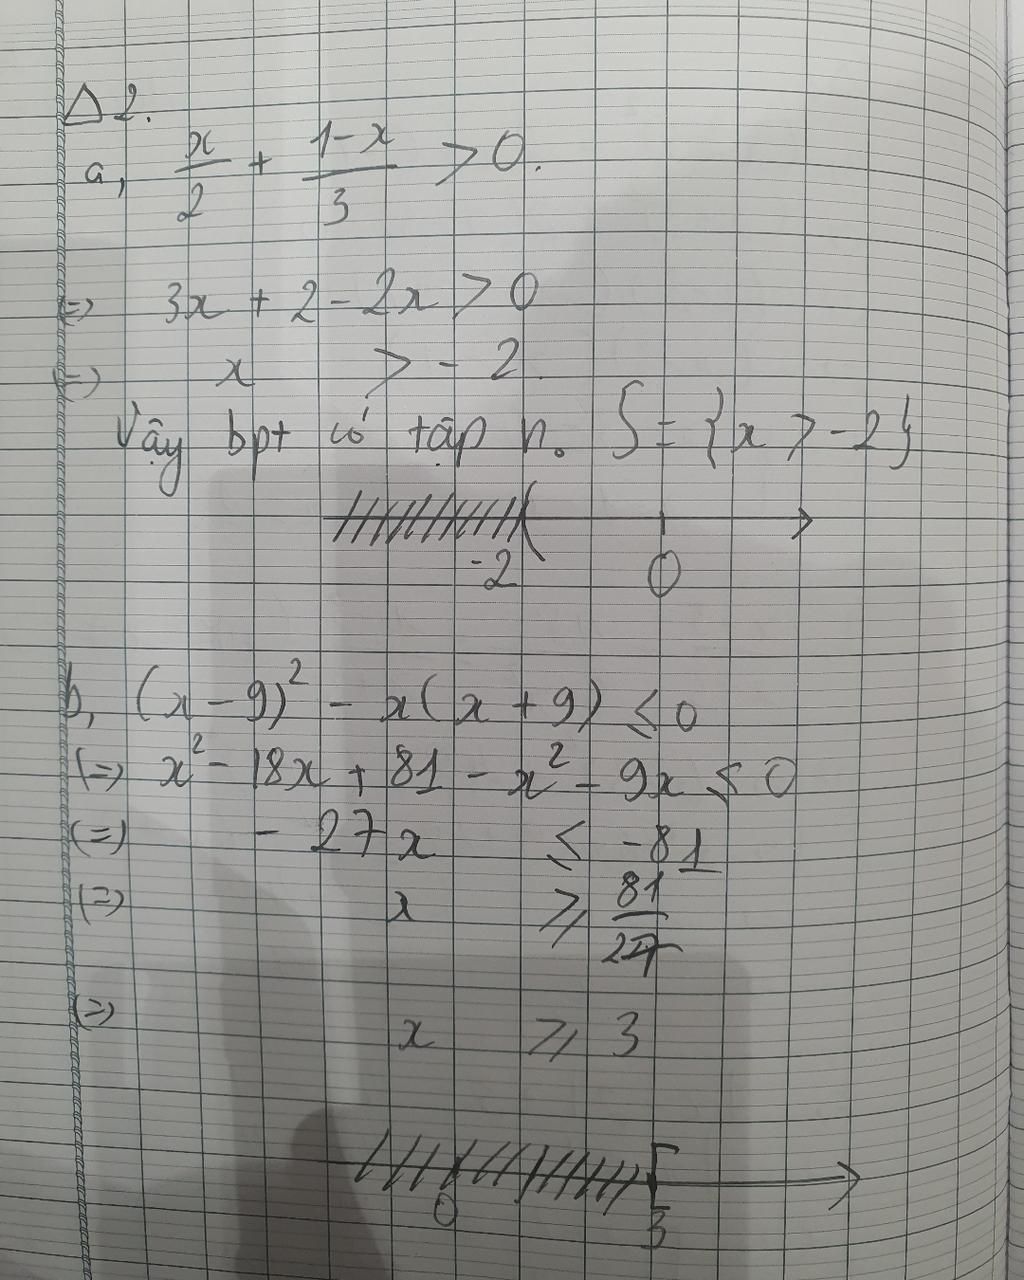 Δ 2.
a, x/2 + (1-x)/3 > 0.
(=) 3x + 2 - 2x > 0
(=) x > - 2
Vậy bpt có tập n. S = {x > -2}
-2 0
b, (x - 9)² - x(x + 9) ≤ 0
(=) x² - 18x + 81 - x² - 9x ≤ 0
(=) - 27x ≤ -81
(=) x ≥ 81/27
(=) x ≥ 3
0 3